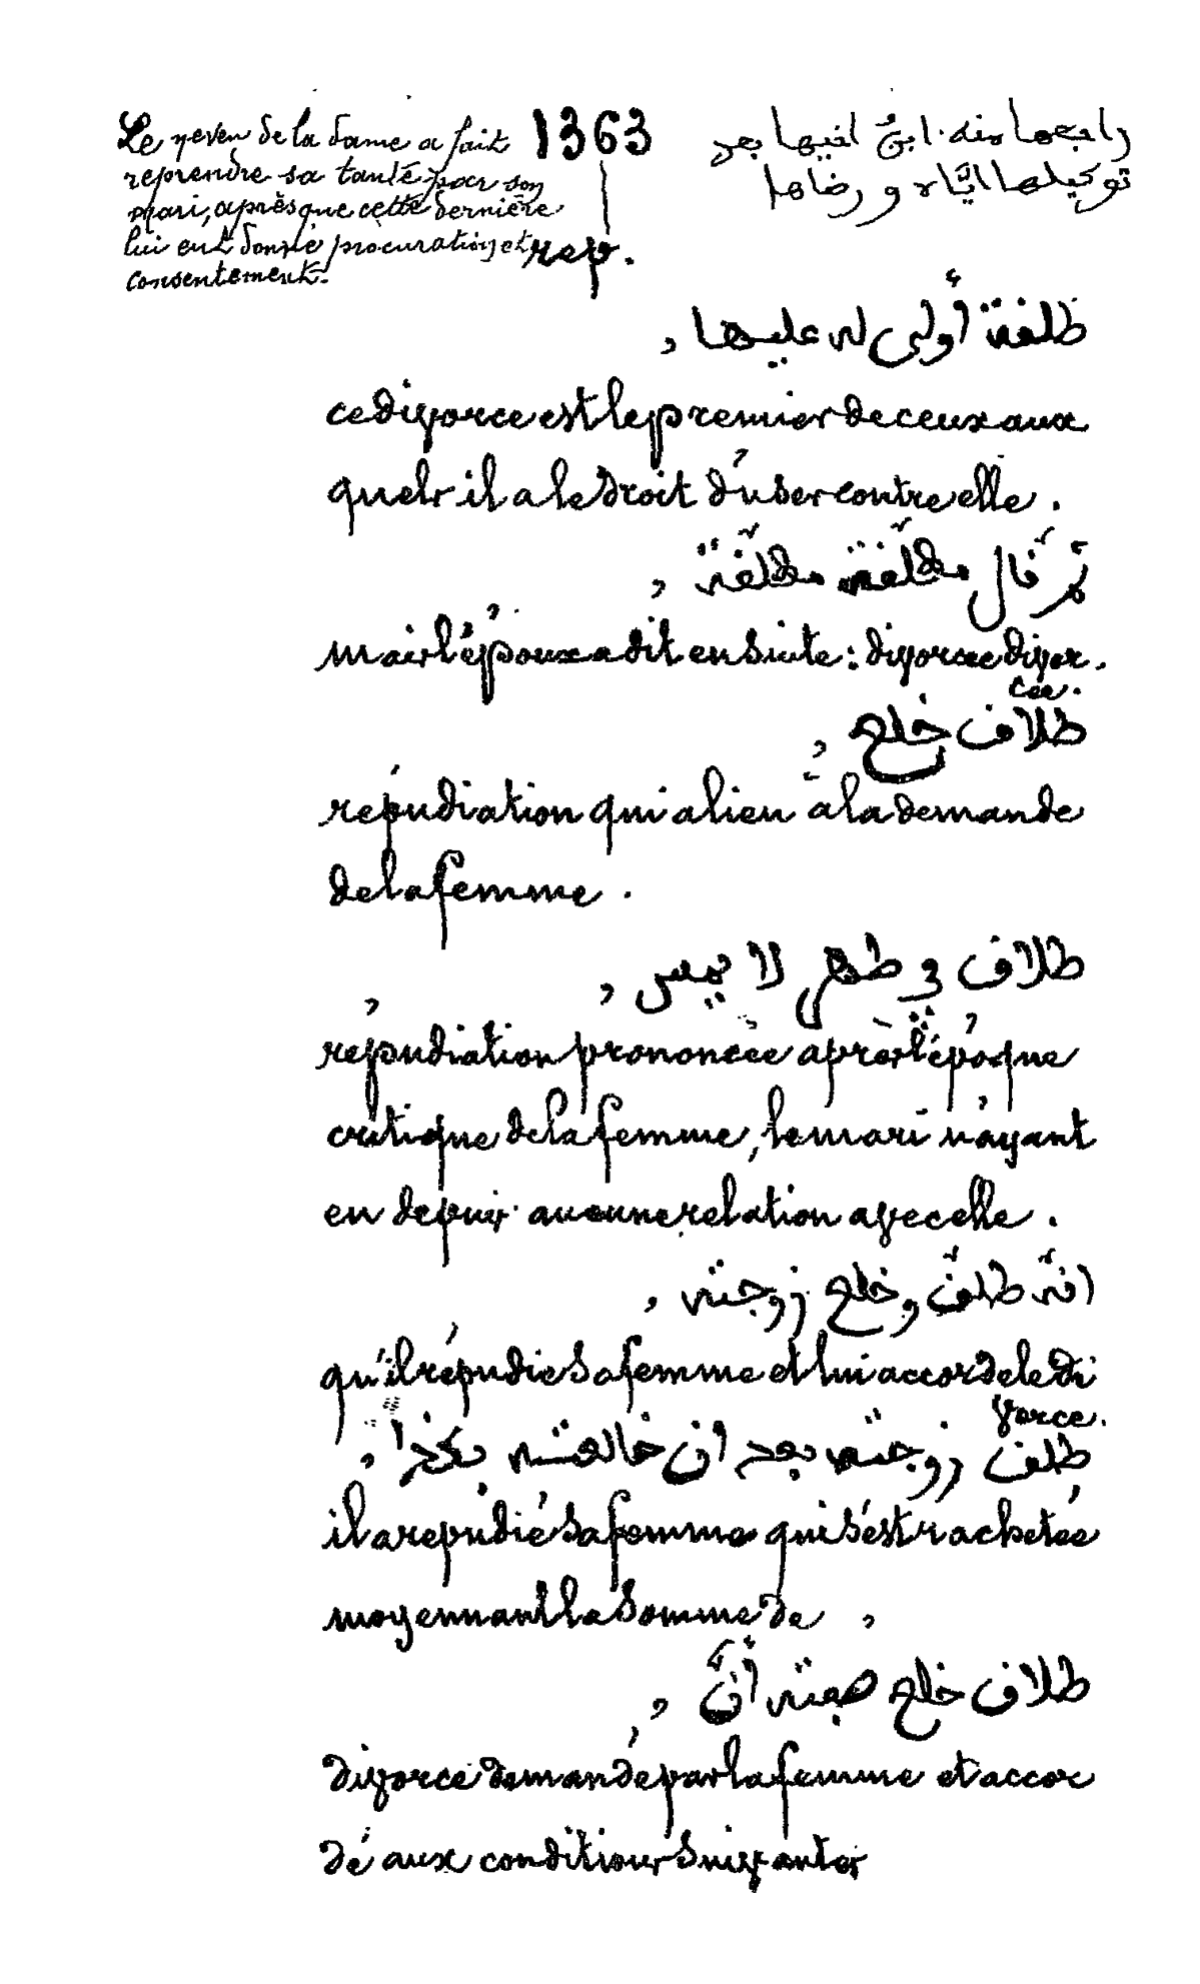 Le neveu de la dame a fait
reprendre sa tante par son
mari, après que cette dernière
lui eût donné procuration et
consentement.
1363
rep.
راجعها منه ابنُ اخيها بعد
توكيلها ايّاه ورضاها
طلفة أولى له عليها ,
ce divorce est le premier de ceux aux
quels il a le droit d'user contre elle .
ثم فال مطلّفة مطلّفة ,
mais l'époux a dit ensuite : divorcée divor.
cée.
طلاف خلع ,
répudiation qui a lieu à la demande
de la femme .
طلاف في طهر لا يمس ,
répudiation prononcée après l'époque
critique de la femme, le mari n'ayant
eu depuis aucune relation avec elle .
انه طلّف وخلع زوجته ,
qu'il répudie sa femme et lui accorde le di
vorce.
طلف زوجته بعد ان خالعته بكذا ,
il a répudié sa femme qui s'est rachetée
moyennant la somme de ,
طلاف خلع صفته أنّ ,
divorce demandé par la femme et accor
dé aux conditions suivantes